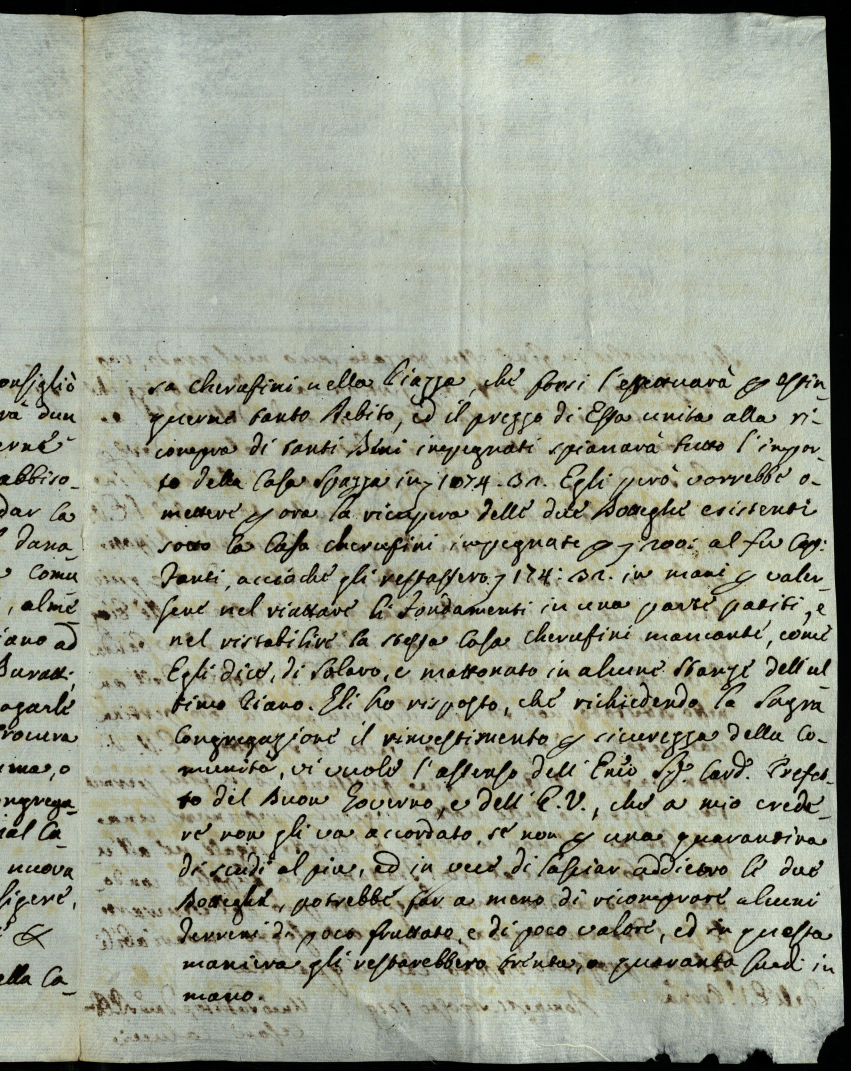 onsigliò
va dun
erne
abbiso-
dar la
dana
comu
, alme
iano ad
Buratt:
agarle
rocura
uma, o
ongrega
ial Ca-
nuova
sigere,
&
ella Ca-
sa Cherufini nella Piazza, che forsi l'effettuarà p estin-
querne tanto Debito, ed il prezzo di Essa unita alla ri-
compra di tanti Beni impegnati spianarà tutto l'impor-
to della Casa Spazza in 1074.32. Egli però vorrebbe o-
mettere p ora la ricupera delle due Botteghe esistenti
sotto la Casa Cherufini impegnate p 200: al fu Cap:
Fanti, acciochè gli restassero 174:32. in mani p valer-
sene nel riattare li Fondamenti in una parte patiti, e
nel ristabilire la stessa Casa Cherufini mancante, come
Egli dice, di Solaro, e mattonato in alcune Stanze dell'ul-
timo Piano. Gli ho risposto, che richiedendo la Sagra
Congregazione il rinvestimento p sicurezza della Co-
munità, vi vuole l'assenso dell'Emo Sig. Card. Prefet-
to del Buon Governo, e dell'E.V., che a mio crede-
re non gli va accordato, se non p una quarantina
di scudi al più, ed in vece di lasciar addietro le due
Botteghe, potrebbe far a meno di ricomprare alcuni
Terreni di poco fruttato, e di poco valore, ed in questa
maniera gli restarebbero trenta, o quaranta Scudi in
mano.